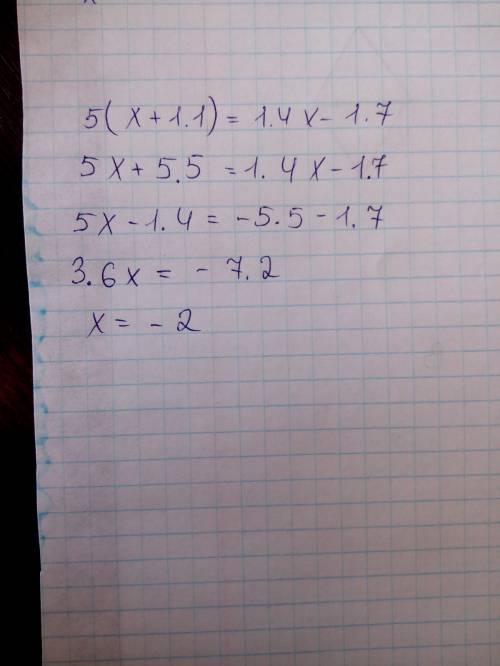 5(x+1.1)=1.4x-1.7
5x+5.5=1.4x-1.7
5x-1.4=-5.5-1.7
3.6x=-7.2
x=-2